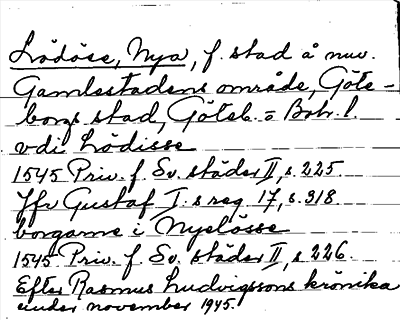 Lödöse, Nya, f. stad å nuv.
Gamlestadens område, Göte-
borgs stad, Göteb. o Boh. l.
vdi Lödisse
1545 Priv. f. Sv. städer II, s. 225.
Jfr Gustaf I:s reg. 17, s. 318.
borgarne i Nyelösse
1545 Priv. f. Sv. städer II, s 226.
Efter Rasmus Ludvigssons krönika
under november 1945.